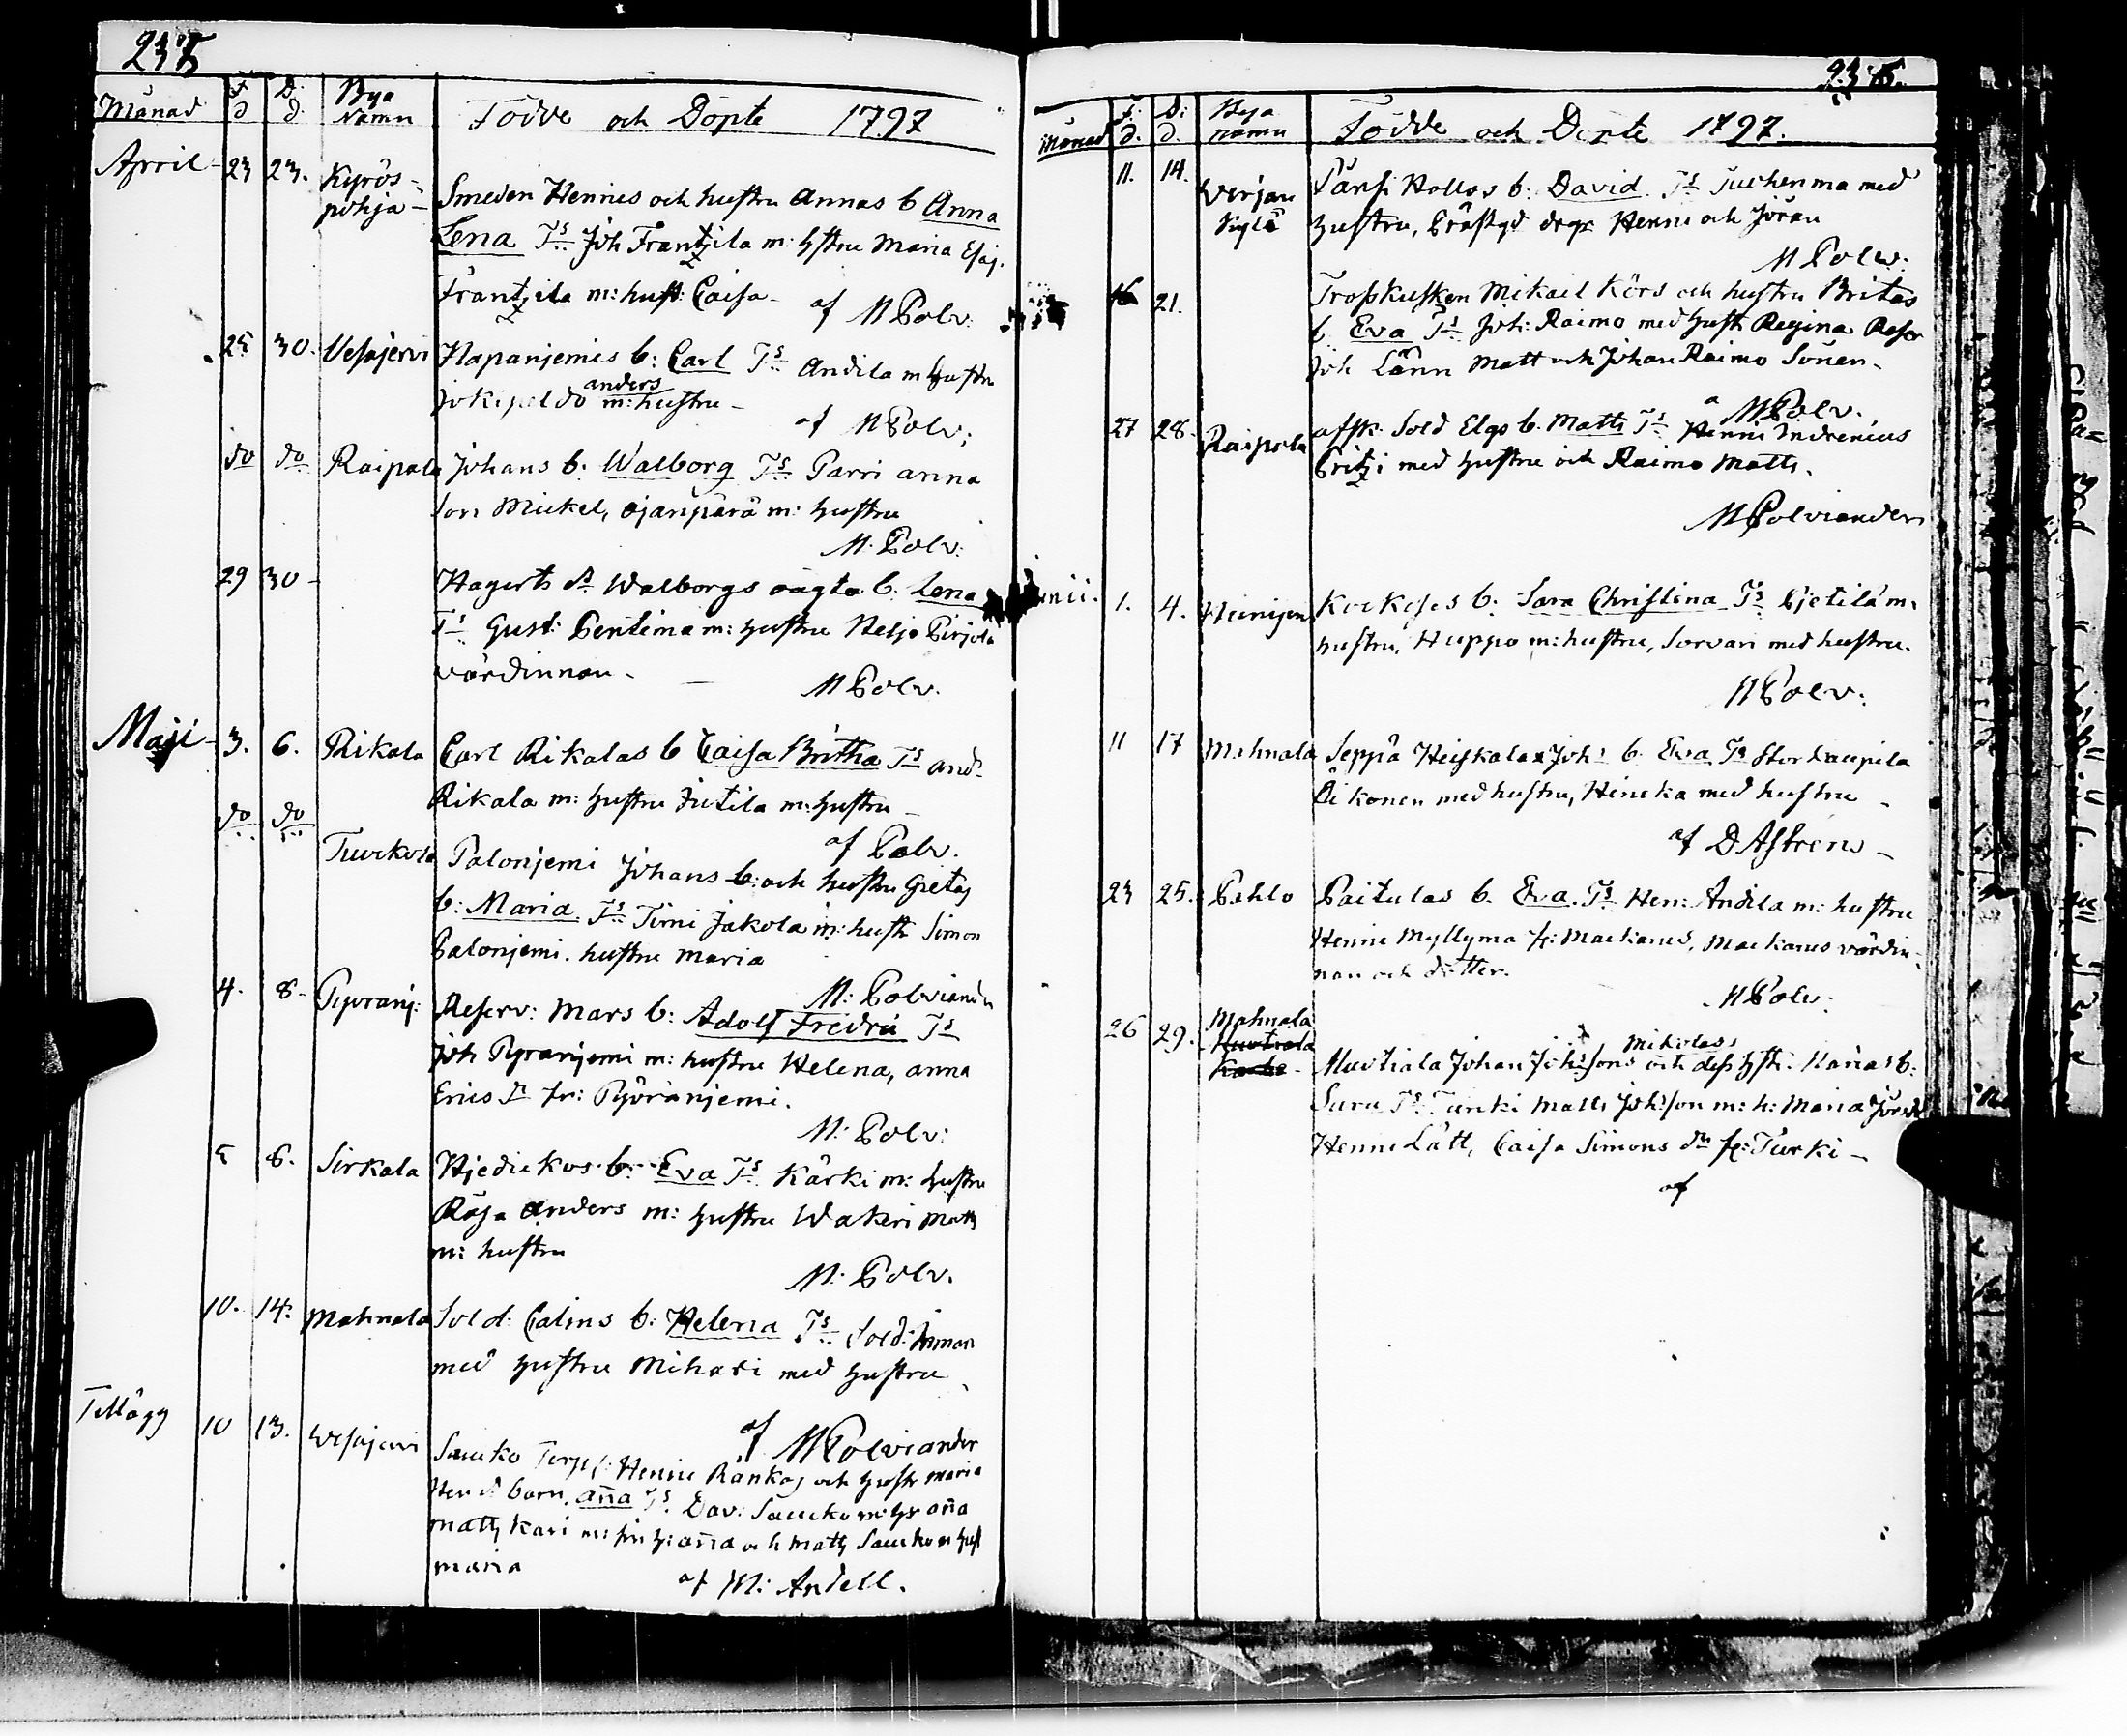 Månad F d D. d. Bya Namn Födde och Döpte 1797
April 23 23. Kyrös-
pohja Smeden Hennes och hustru Annas b Anna
Lena Ts Joh Frantzila m: hstru Maria Esaj.
Frantzila m: hust: Caisa - af M Polv:
25 30. Vesajervi Hapanjemis b: Carl Ts Andila m hustru
anders
Jokipeldo m: hustru -
af M Polv;
do do Raipala Johans b. Walborg Ts Parri anna
son Mickel, Ojanperä m: hustru
M. Polv:
29 30 - Hagerts dr Walborgs oägta b. Lena
Ts Gust: Pentima m: hustru Heljo Pirjola
värdinnan -
M Polv.
Maji - 3. 6. Rikala Carl Rikalas b Caisa Britha Ts and:
Rikala m: hustru Jutila m: hustru -
af Polv.
do do Tuorkola Palonjemi Johans b: och hustru Gretas
b: Maria Ts Timi Jakola m: hustr Simon
Palonjemi. hustru Maria
M: Polviander
4. 8 - Pyöränj: Reserv: Mars b: Adolf Fredric Ts
Joh Pyöranjemi m: hustru Helena, anna
Erics dr fr: Pyöränjemi.
M: Polv:
5 8. Sirkala Hjedickos b: Eva Ts Kärki m: hustru
Röja Anders m: hustru Wakeri Matts
m: hustru
M. Polv.
10. 14. Mahnala Sold: Calins b: Helena Ts Sold:
med hustru Mihari med hustru
af M Polviander
Tillägg 10 13. Wesajervi Saucko Torp: Henric Ränkos och hustr Maria
Hen dr barn. aña Ts Dav: Saucko m: hr aña
Matts Kari m: sin h: aña och Matts Saucko m hust
Maria
af M: Andell.
Månad F: d. D: d. Bya namn Födde och Döpte 1797.
11. 14. Wirjan
Kylä Pänsi Hollos b: David Ts Tuckenma med
hustru, Präslgd drgr Henric och Jöran
M Polv:
16 21. Trosskusken Mikael Körs och hustru Britas
b. Eva Ts Joh: Raimo med hustr Regina Reser
Joh Länn Matt och Johan Raimo Sönen -
M Polv.
27 28. Raipola afsk. Sold Elgs b. Matts Ts Henric Indrenius
Pritzi med hustru och Raimo Matts.
M Polviander
Junii. 1. 4. Heinijem Kockoses b: Sara Christina Ts Pjetilä m:
hustru, Huppo m: hustru, Sorvari med hustru.
M Polv:
11 17 Mahnala Seppä Heiskalas Joh: b: Eva Ts Stor Kaupila
Rikonen med hustru, Hincka med hustru -
af D Astrens -
23 25. Pahlo Paitulas b. Eva. Ts Hen: Andila m: hustru
Henric Myllymä fr: Mackanes, Mackanes värdin-
nan och dotter.
M Polv:
26 29. Mahnala
Muotiala Mikolas
Muotiala Johan Johssons och dess hstr. Karias b:
Sara Ts Turcki Matts Johsson m: h: Maria Jörsdr
Henric Lätt, Caisa Simons dr fr: Turcki -
af